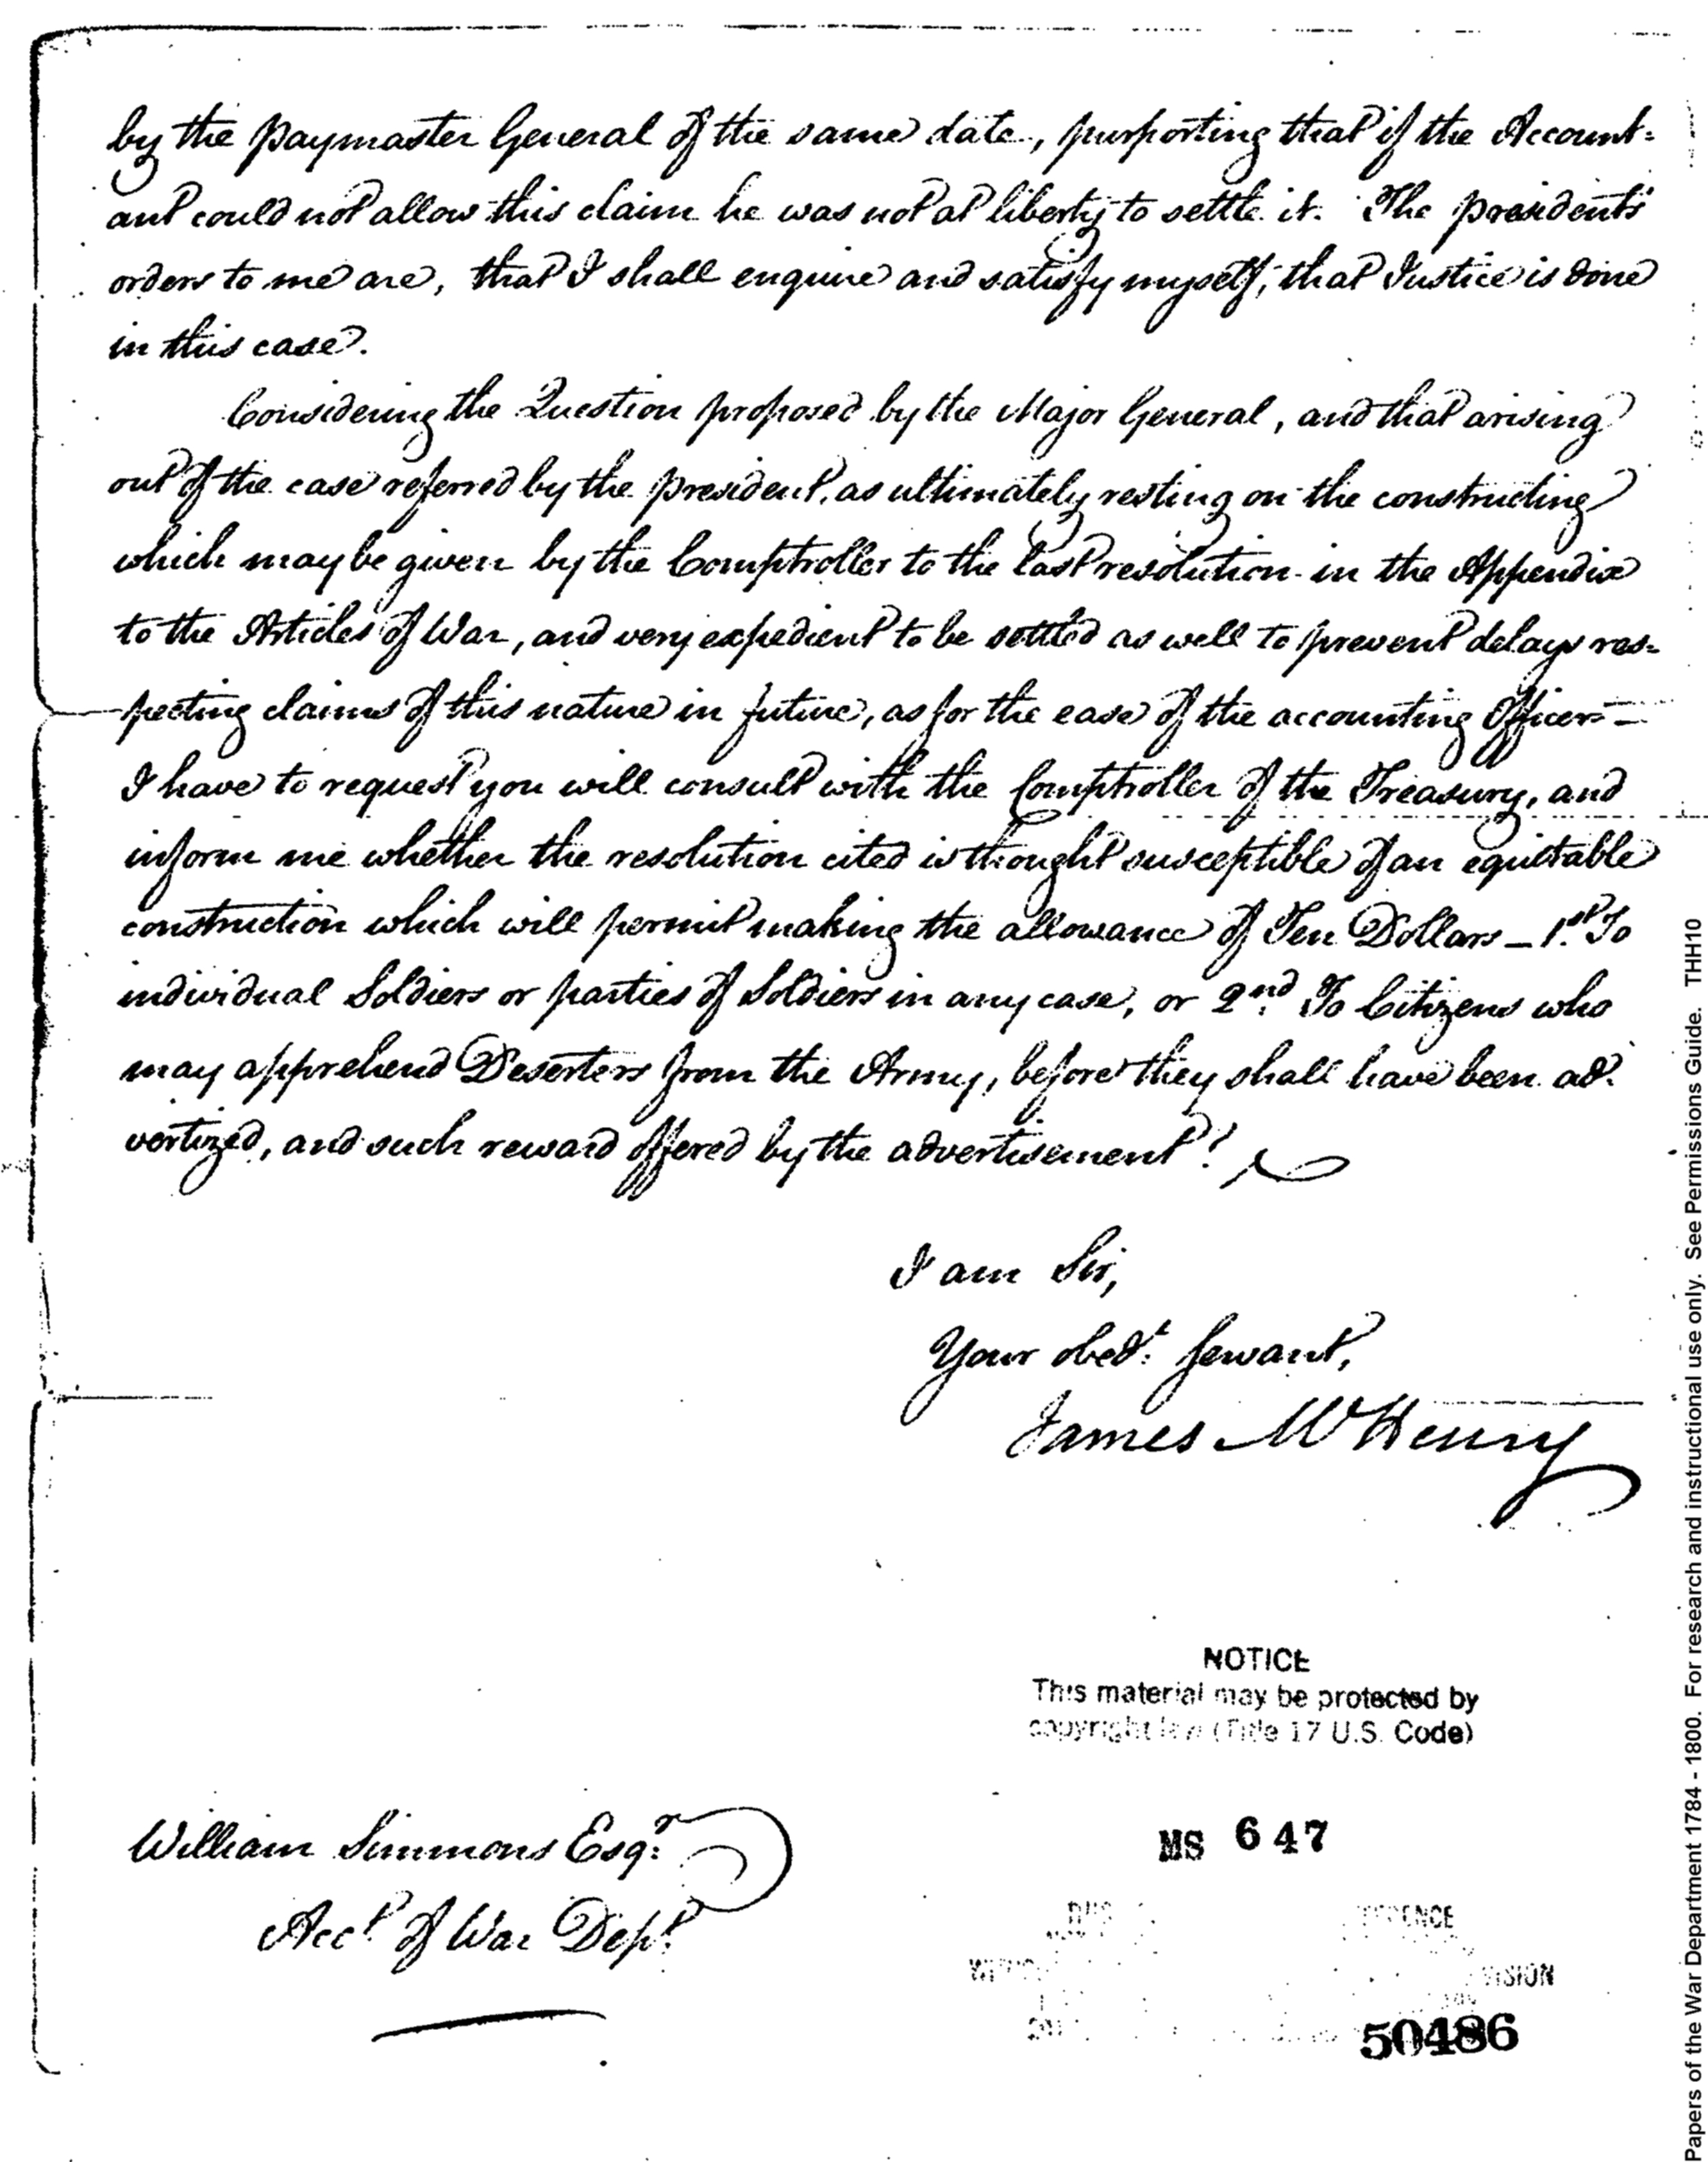 by the Paymaster General of the same date, purporting that if the Account=
ant could not allow this claim he was not at liberty to settle it. The president's
orders to me are, that I shall enquire and satisfy myself, that Justice is done
in this case.
Considering the Question proposed by the Major General, and that arising
out of the case referred by the president, as ultimately resting on the constructing
which may be given by the Comptroller to the last resolution in the Appendix
to the Articles of War, and very expedient to be settled as well to prevent delays res=
pecting claims of this nature in future, as for the ease of the accounting Officers—
I have to request you will consult with the Comptroller of the Treasury, and
inform me whether the resolution cited is thought susceptible of an equitable
construction which will permit making the allowance of Ten Dollars — 1st. To
individual Soldiers or parties of Soldiers in any case, or 2nd. To Citizens who
may apprehend Deserters from the Army, before they shall have been ad:
vertized, and such reward offered by the advertisement?
I am Sir,
Your obedt. Servant,
James McHenry
NOTICE
This material may be protected by
copyright law (Title 17 U.S. Code)
William Simmons Esqr.
Acct. of War Dept.
MS 647
50486
Papers of the War Department 1784 - 1800. For research and instructional use only. See Permissions Guide. THH10